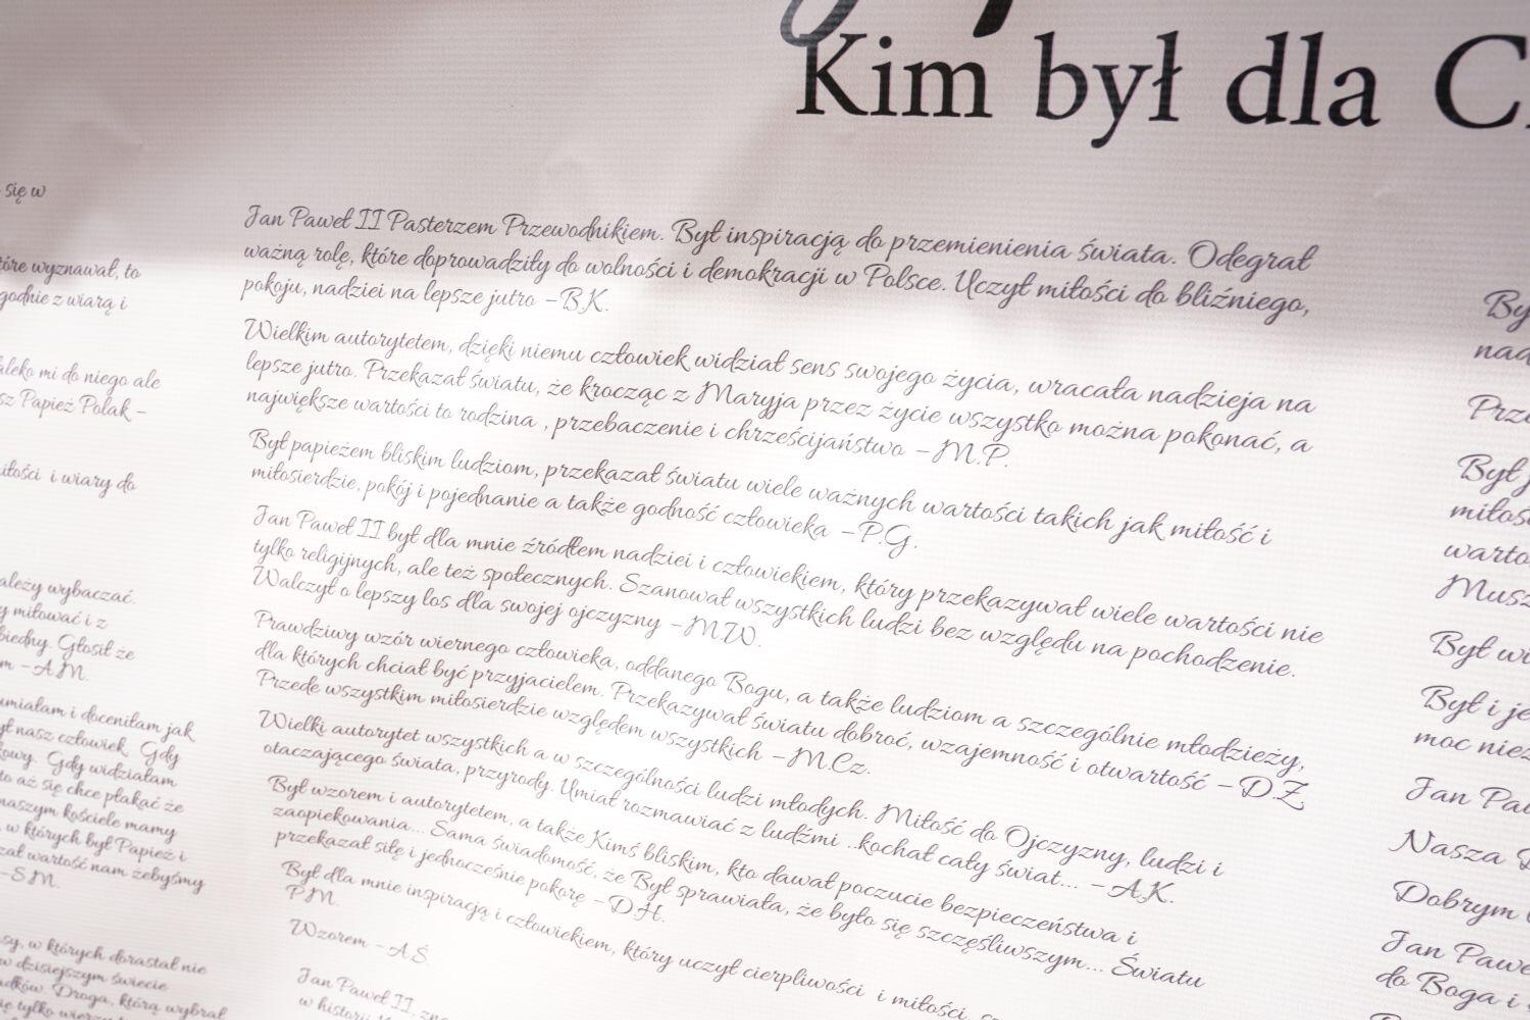 Kim był dla
się w
wyznawał, to
godnie z wiarą i
mi do niego ale
Papież Polak –
i wiary do
wybaczać.
miłować i z
biedny. Głosił że
–A.M.
i doceniłam jak
nasz człowiek. Gdy
Gdy widziałam
to aż się chce płakać że
naszym kościele mamy
w których był Papież i
wartość nam żebyśmy
–S.M.
w których dorastał nie
w dzisiejszym świecie
Droga, którą wybrał
tylko
Jan Paweł II Pasterzem Przewodnikiem. Był inspiracją do przemienienia świata. Odegrał
ważną rolę, które doprowadziły do wolności i demokracji w Polsce. Uczył miłości do bliźniego,
pokoju, nadziei na lepsze jutro –B.K.
Wielkim autorytetem, dzięki niemu człowiek widział sens swojego życia, wracała nadzieja na
lepsze jutro. Przekazał światu, że krocząc z Maryja przez życie wszystko można pokonać, a
największe wartości to rodzina , przebaczenie i chrześcijaństwo –M.P.
Był papieżem bliskim ludziom, przekazał światu wiele ważnych wartości takich jak miłość i
miłosierdzie, pokój i pojednanie a także godność człowieka –P.G.
Jan Paweł II był dla mnie źródłem nadziei i człowiekiem, który przekazywał wiele wartości nie
tylko religijnych, ale też społecznych. Szanował wszystkich ludzi bez względu na pochodzenie.
Walczył o lepszy los dla swojej ojczyzny –M.W.
Prawdziwy wzór wiernego człowieka, oddanego Bogu, a także ludziom a szczególnie młodzieży,
dla których chciał być przyjacielem. Przekazywał światu dobroć, wzajemność i otwartość –D.Z
Przede wszystkim miłosierdzie względem wszystkich –M.Cz.
Wielki autorytet wszystkich a w szczególności ludzi młodych. Miłość do Ojczyzny, ludzi i
otaczającego świata, przyrody. Umiał rozmawiać z ludźmi ..kochał cały świat... –A.K.
Był wzorem i autorytetem, a także Kimś bliskim, kto dawał poczucie bezpieczeństwa i
zaopiekowania... Sama świadomość, że Był sprawiała, że było się szczęśliwszym... Światu
przekazał siłę i jednocześnie pokorę –D.H.
Był dla mnie inspiracją i człowiekiem, który uczył cierpliwości i miłości,
P.M.
Wzorem –A.Ś
Jan Paweł II,
w historii
Był
Był i
moc
Jan
Nasza
Dobrym
Jan
do Boga i